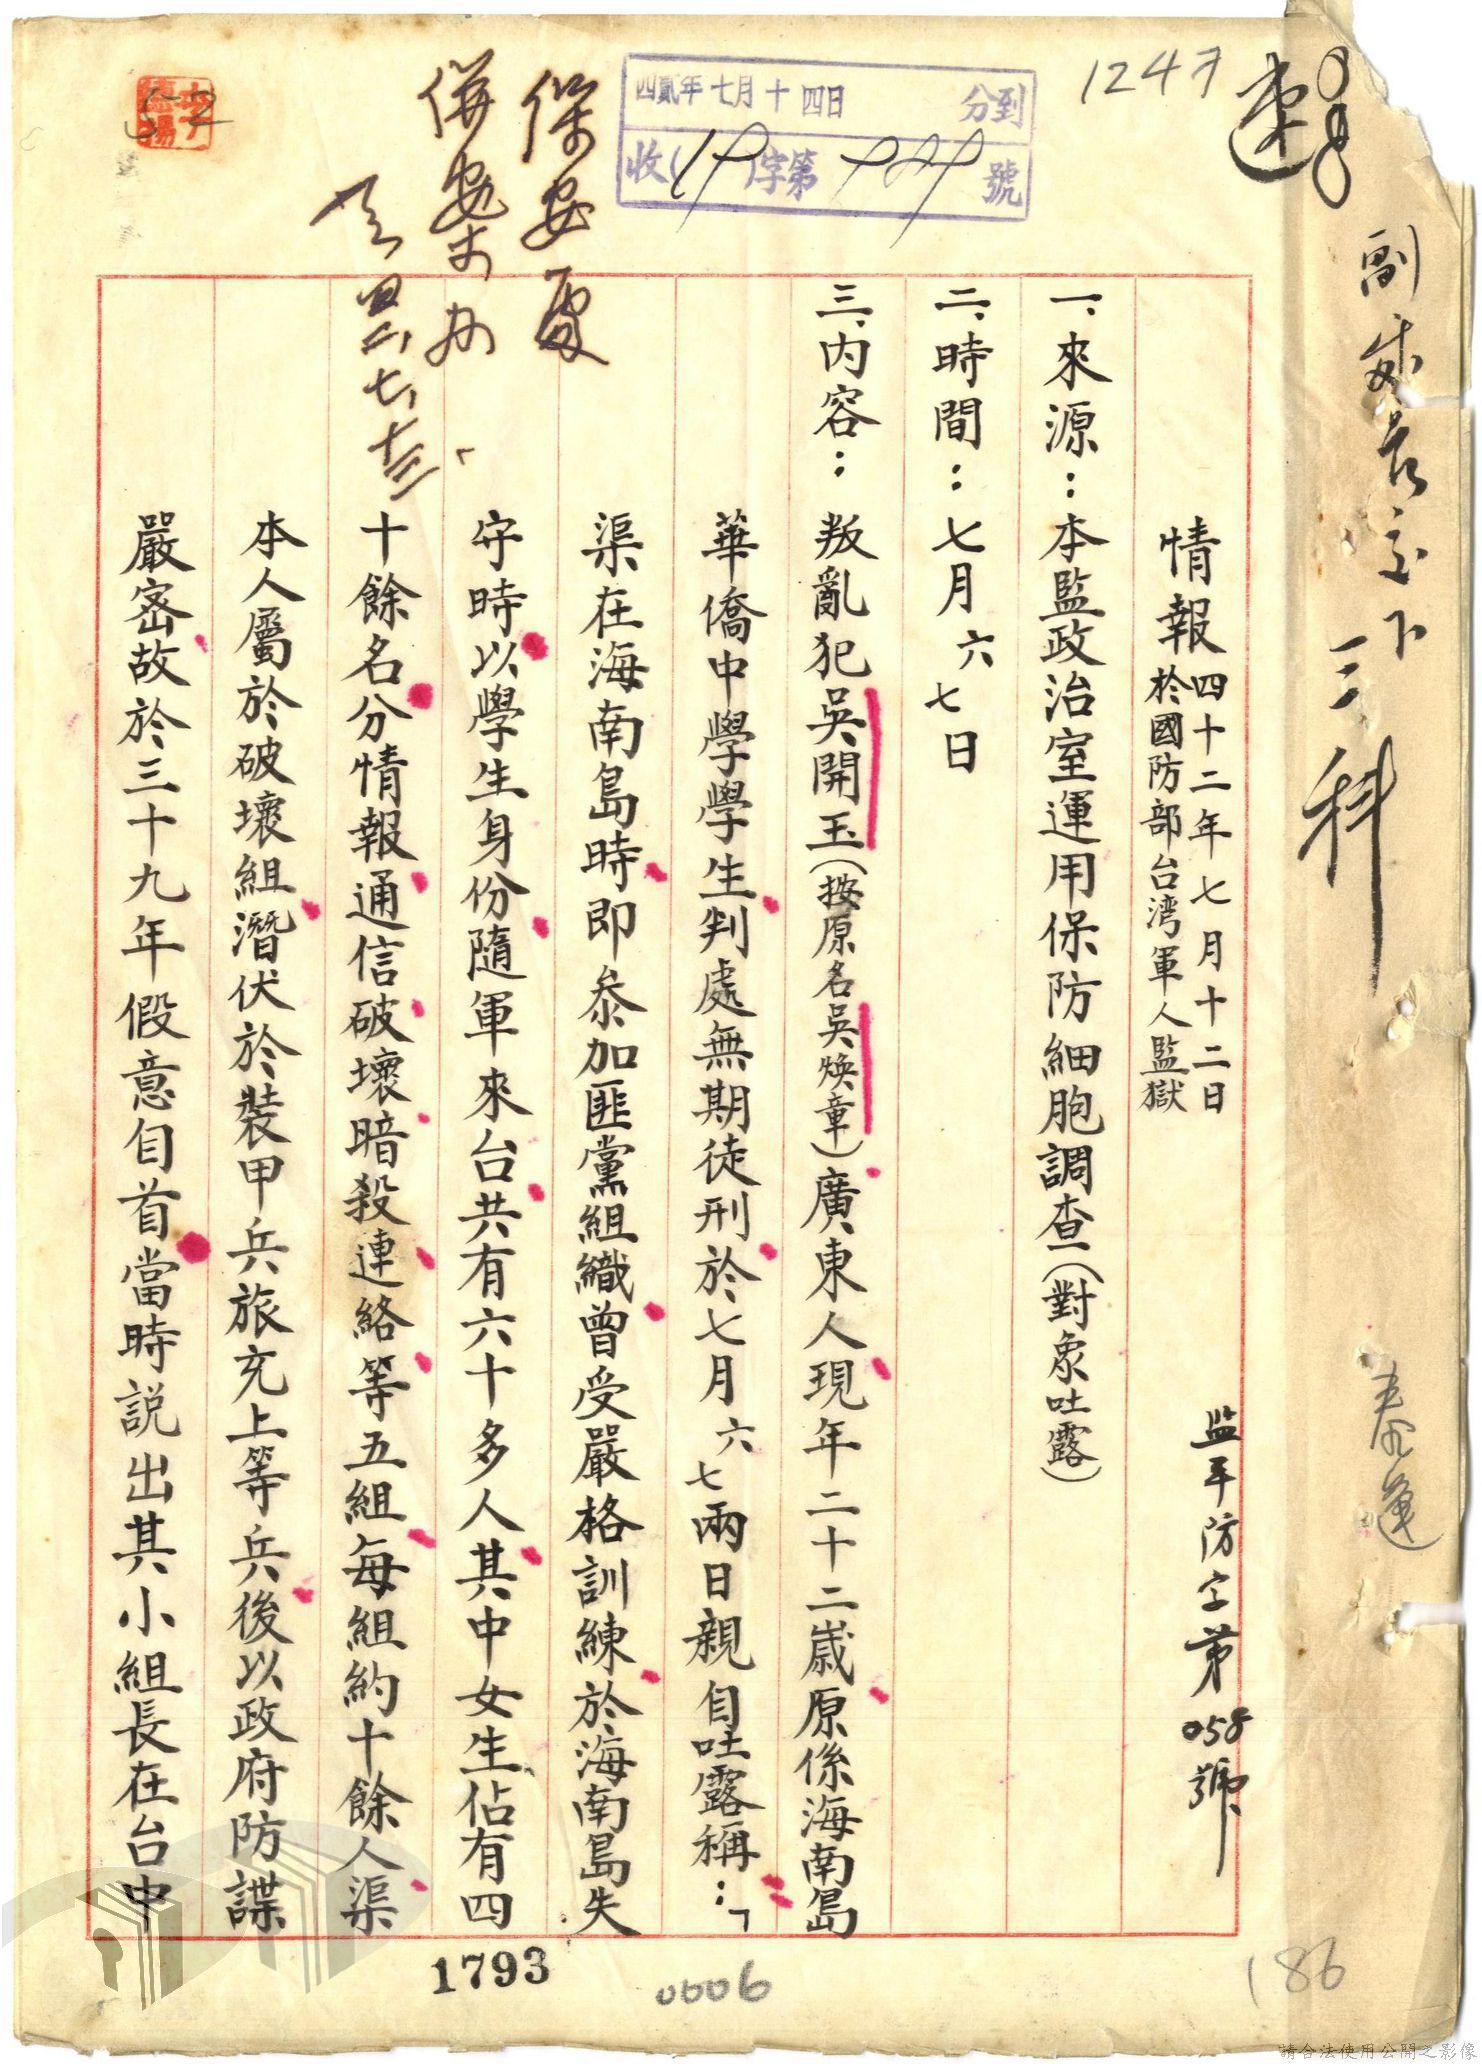 1247
四貳年七月十四日 分到
收 字第 號
副處長交下
三科
保安處
併案办
四二、七、十三、
情報 四十二年七月十二日
於國防部台湾軍人監獄
监平防字第058號
一、來源：本監政治室運用保防細胞調查（對象吐露）
二、時間：七月六七日
三、內容：叛亂犯吳開玉（按原名吳煥章）廣東人現年二十二歲原係海南島
華僑中學學生判處無期徒刑於七月六七兩日親自吐露稱：「
渠在海南島時即參加匪黨組織曾受嚴格訓練於海南島失
守時以學生身份隨軍來台共有六十多人其中女生佔有四
十餘名分情報通信破壞暗殺連絡等五組每組約十餘人渠
本人屬於破壞組潛伏於裝甲兵旅充上等兵後以政府防諜
嚴密故於三十九年假意自首當時説出其小組長在台中
1793
0006
186
請合法使用公開之影像